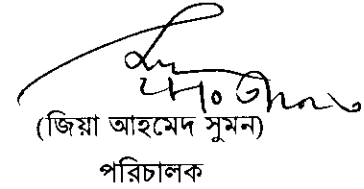 (জিয়া আহমেদ সুমন)
পরিচালক